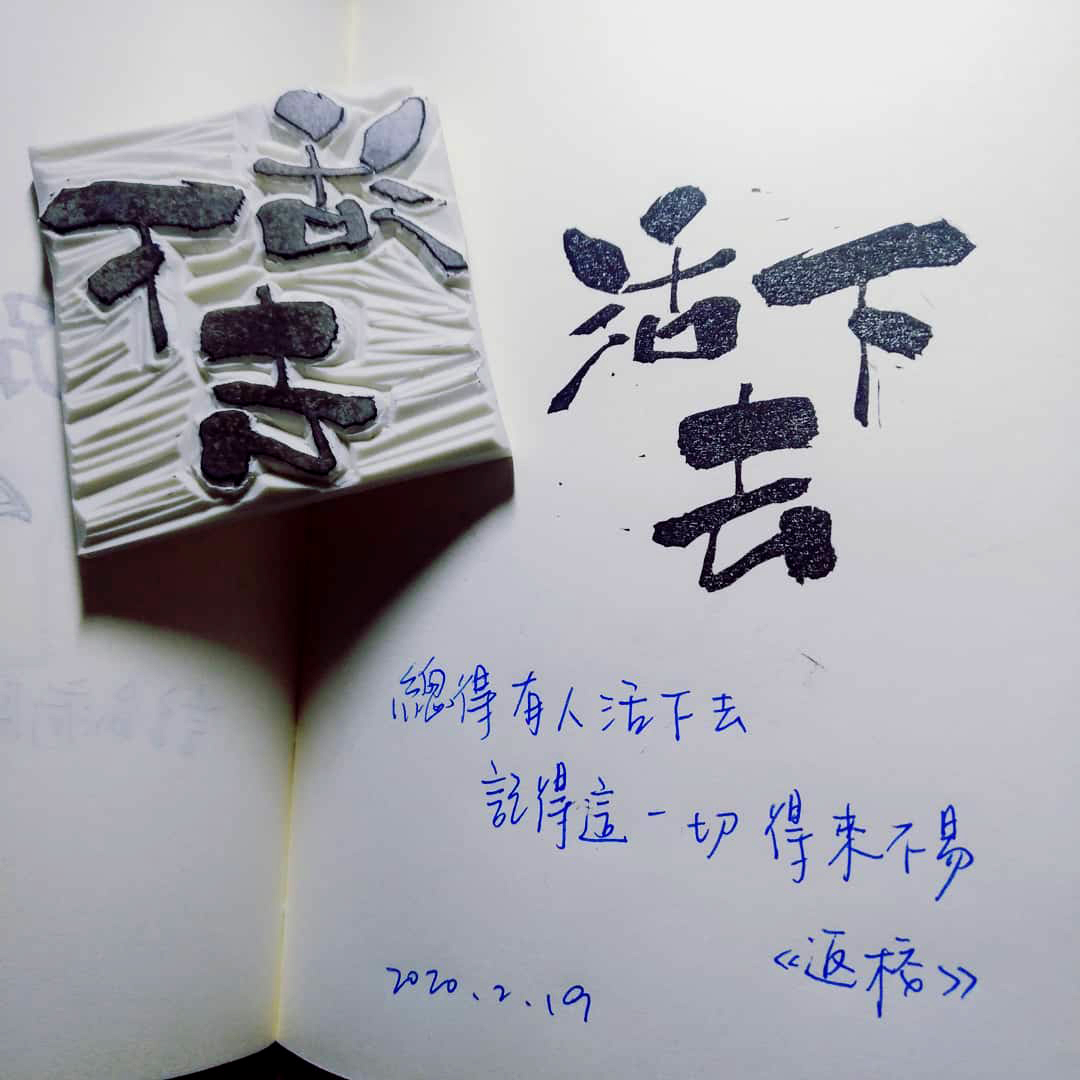 活下
去
總得有人活下去
記得這一切得來不易
《返校》
2020.2.19